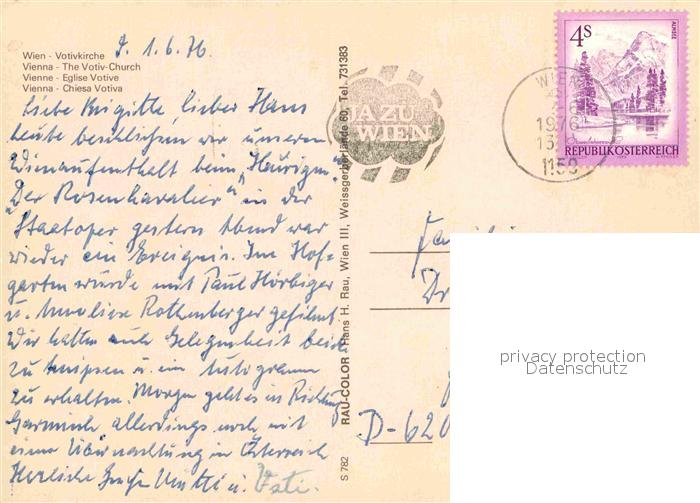 Wien - Votivkirche
Vienna - The Votiv-Church
Vienne - Eglise Votive
Vienna - Chiesa Votiva
d. 1.6.76
Liebe Brigitte, lieber Hans
heute beschliessen wir unseren
Wienaufenthalt beim „Heurigen".
„Der Rosenkavalier" in der
Staatsoper gestern Abend war
wieder ein Ereignis. Im Hof-
garten wurde mit Paul Hörbiger
u. Anneliese Rothenberger gefilmt.
Wir hatten auch Gelegenheit beide
zu knipsen u. ein Autogramm
zu erhalten. Morgen geht es in Richtung
Garmisch allerdings noch mit
einer Übernachtung in Österreich
Herzliche Grüße Mutti u. Vati.
S 782 RAU-COLOR Hans H. Rau, Wien III, Weissgerberlände 60, Tel. 731383
JA ZU
WIEN
WIEN
1976
1150
4 S
ALMSEE
REPUBLIK ÖSTERREICH
Familie
Dr
D-620
privacy protection
Datenschutz